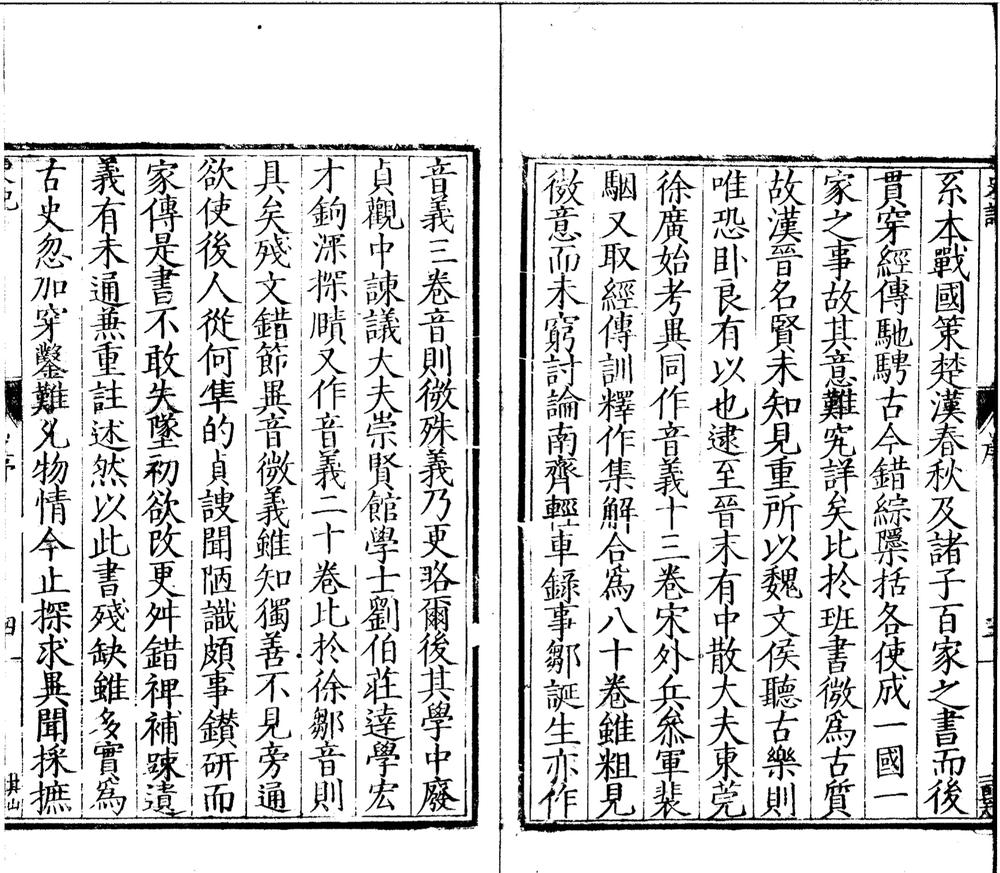 系本戰國策楚漢春秋及諸子百家之書而後
貫穿經傳馳騁古今錯綜隱括各使成一國一
家之事故其意難究詳矣比於班書微爲古質
故漢晉名賢未知見重所以魏文侯聽古樂則
唯恐臥良有以也逮至晉末有中散大夫東莞
徐廣始考異同作音義十三卷宋外兵叅軍裴
駰又取經傳訓釋作集解合爲八十卷雖粗見
微意而未窮討論南齊輕車録事鄒誕生亦作
音義三卷音則微殊義乃更略爾後其學中廢
貞觀中諫議大夫崇賢館學士劉伯莊達學宏
才鉤深探賾又作音義二十卷比於徐鄒音則
具矣殘文錯節異音微義雖知獨善不見旁通
欲使後人從何凖的貞謏聞陋識頗事鑚研而
家傳是書不敢失墜初欲改更舛錯裨補踈遺
義有未通兼重註述然以此書殘缺雖多實爲
古史忽加穿鑿難允物情今止探求異聞採摭